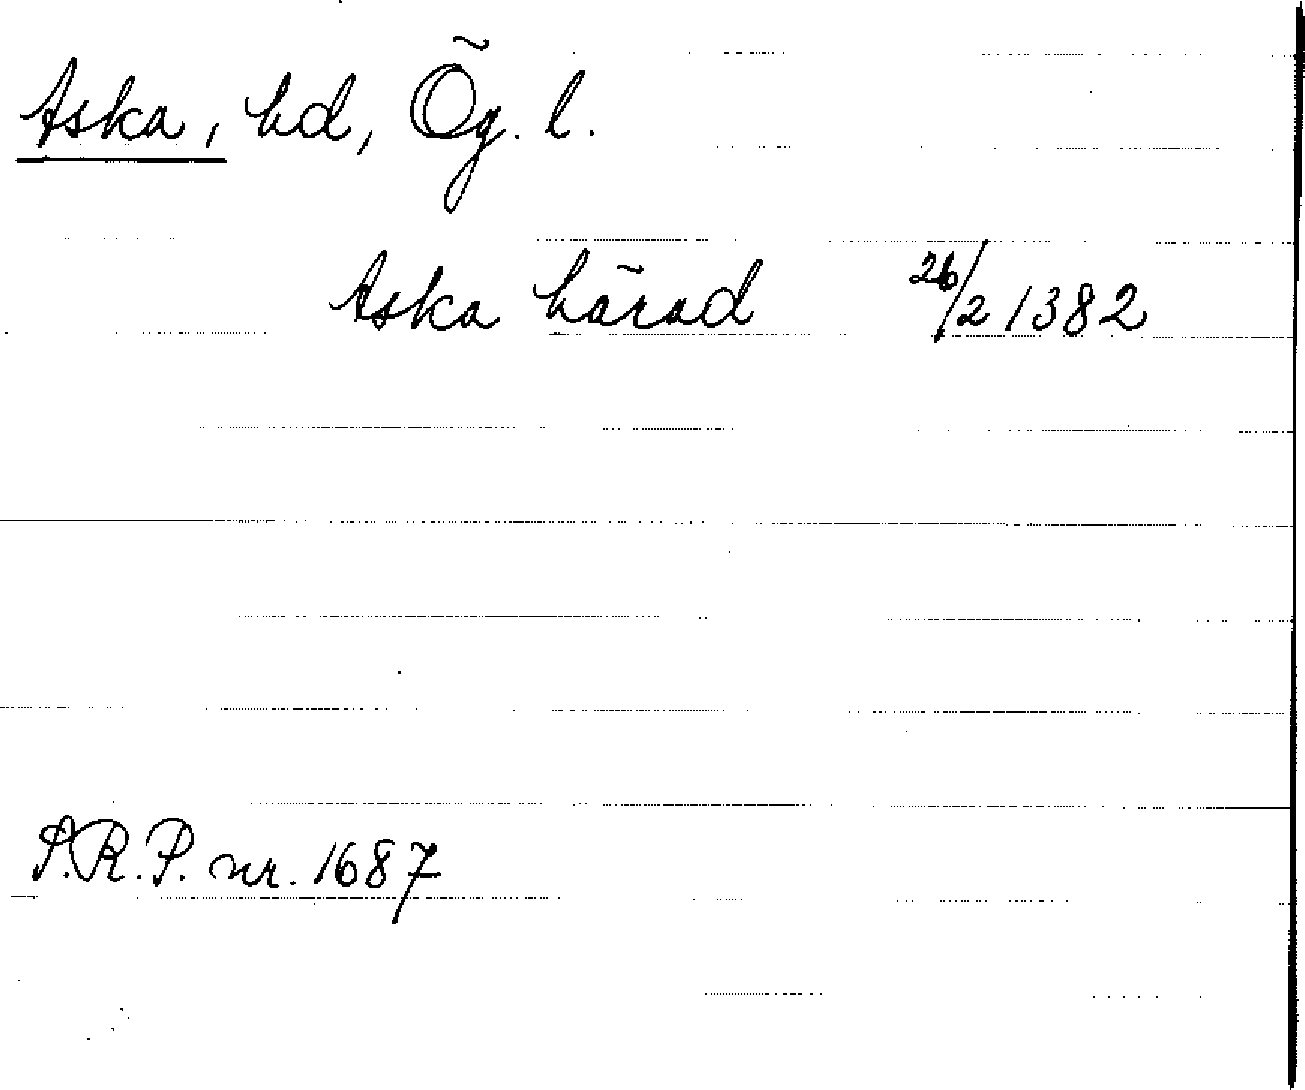 Aska, hd, Ög. l.
Aska härad 26/2 1382
S.R.P. nr. 1687